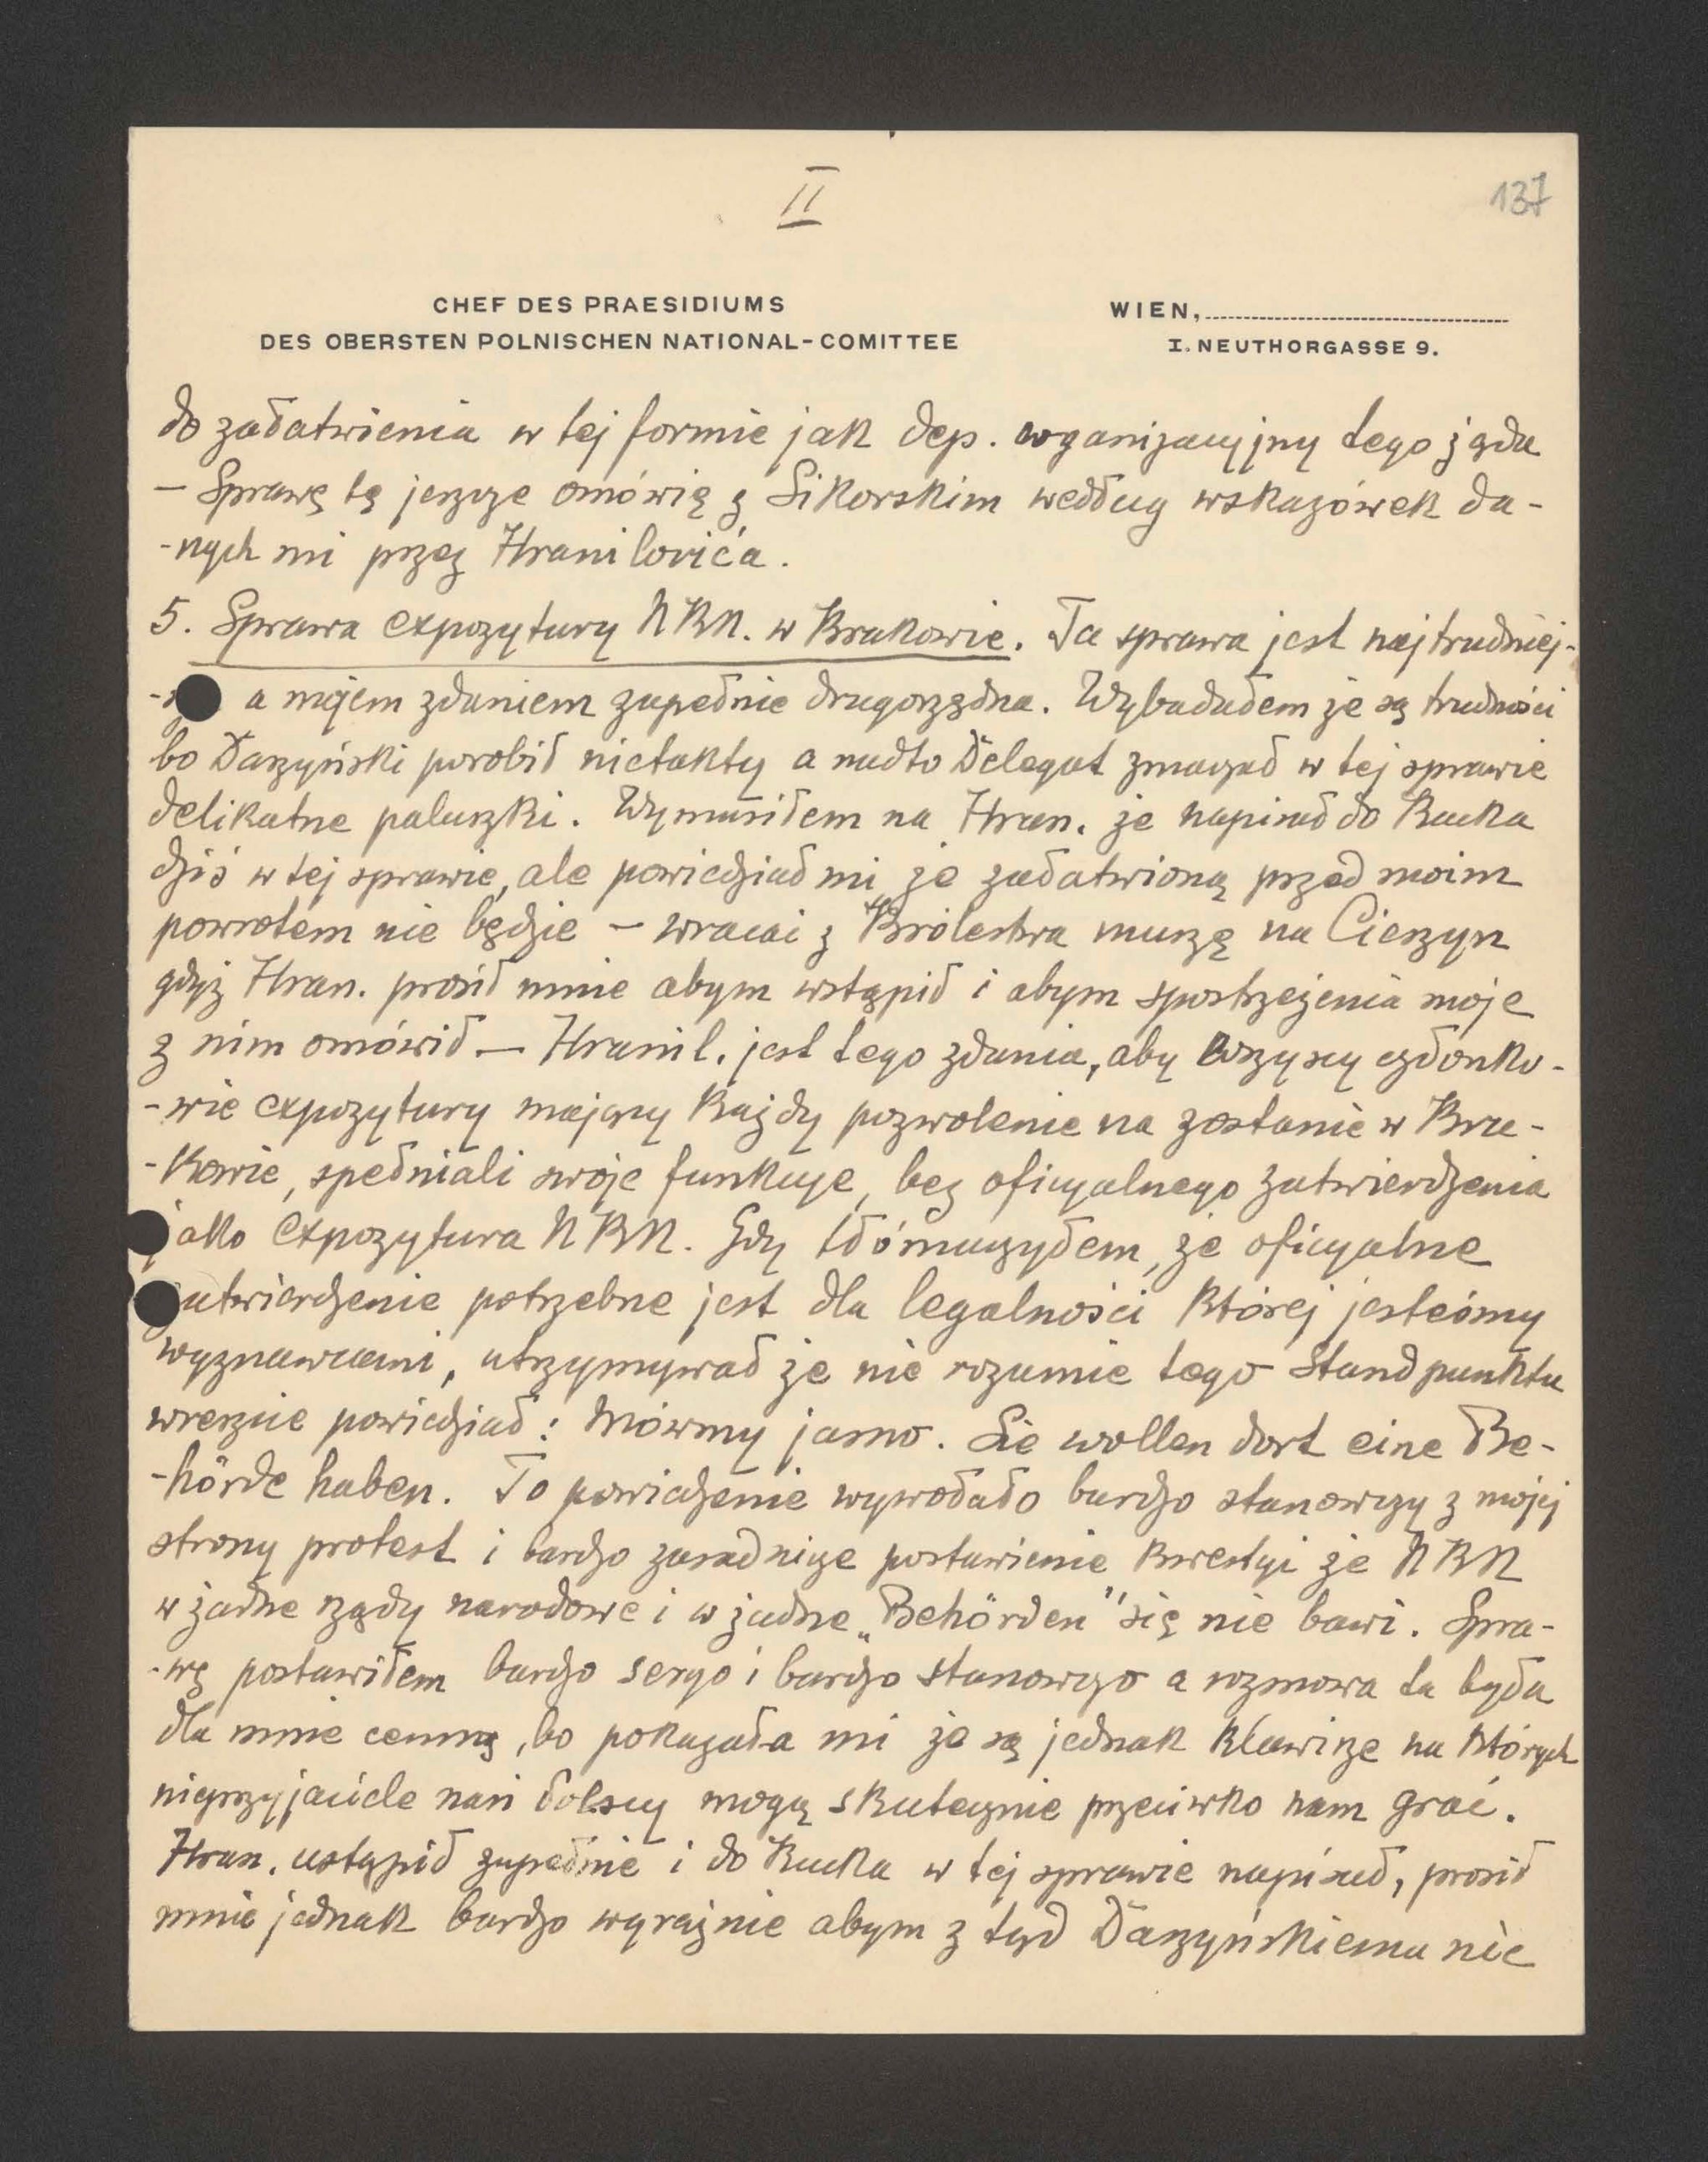 II
137
CHEF DES PRAESIDIUMS
DES OBERSTEN POLNISCHEN NATIONAL-COMITTEE
WIEN,
I. NEUTHORGASSE 9.
do załatwienia w tej formie jak dep. organizacyjny tego żąda
– Sprawę tę jeszcze omówię z Sikorskim według wskazówek da-
-nych mi przez Hranilovića.
5. Sprawa expozytury NKN. w Krakowie. Ta sprawa jest najtrudniej-
a mojem zdaniem zupełnie drugorzędna. Wybadałem że są trudności
bo Daszyński porobił nietakty a nadto Delegat zmaczał w tej sprawie
delikatne paluszki. Wymusiłem na Hran. że napisał do Kucka
dziś w tej sprawie, ale powiedział mi że załatwioną przed moim
powrotem nie będzie – wracać z Królestwa muszę na Cieszyn
gdyż Hran. prosił mnie abym wstąpił i abym spostrzeżenia moje
z nim omówił – Hranil. jest tego zdania, aby wszyscy członko-
-wie expozytury mający każdy pozwolenie na zostanie w Kra-
-kowie, spełniali swoje funkcje, bez oficyalnego zatwierdzenia
jako Expozytura NKN. Gdy tłómaczyłem, że oficyalne
zatwierdzenie potrzebne jest dla legalności której jesteśmy
wyznawcami, utrzymywał że nie rozumie tego Standpunktu
wreszcie powiedział: Mówmy jasno. Sie wollen dort eine Be-
-hörde haben. To powiedzenie wywołało bardzo stanowczy z mojej
strony protest i bardzo zasadnicze postawienie kwestyi że NKN
w żadne rządy narodowe i w żadne „Behörden" się nie bawi. Spra-
-wę postawiłem bardzo serjo i bardzo stanowczo a rozmowa ta była
dla mnie cenną, bo pokazała mi że są jednak klawisze na których
nieprzyjaciele nasi polscy mogą skutecznie przeciwko nam grać.
Hran. ustąpił zupełnie i do Kucka w tej sprawie napisał, prosił
mnie jednak bardzo wyraźnie abym z tąd Daszyńskiemu nie